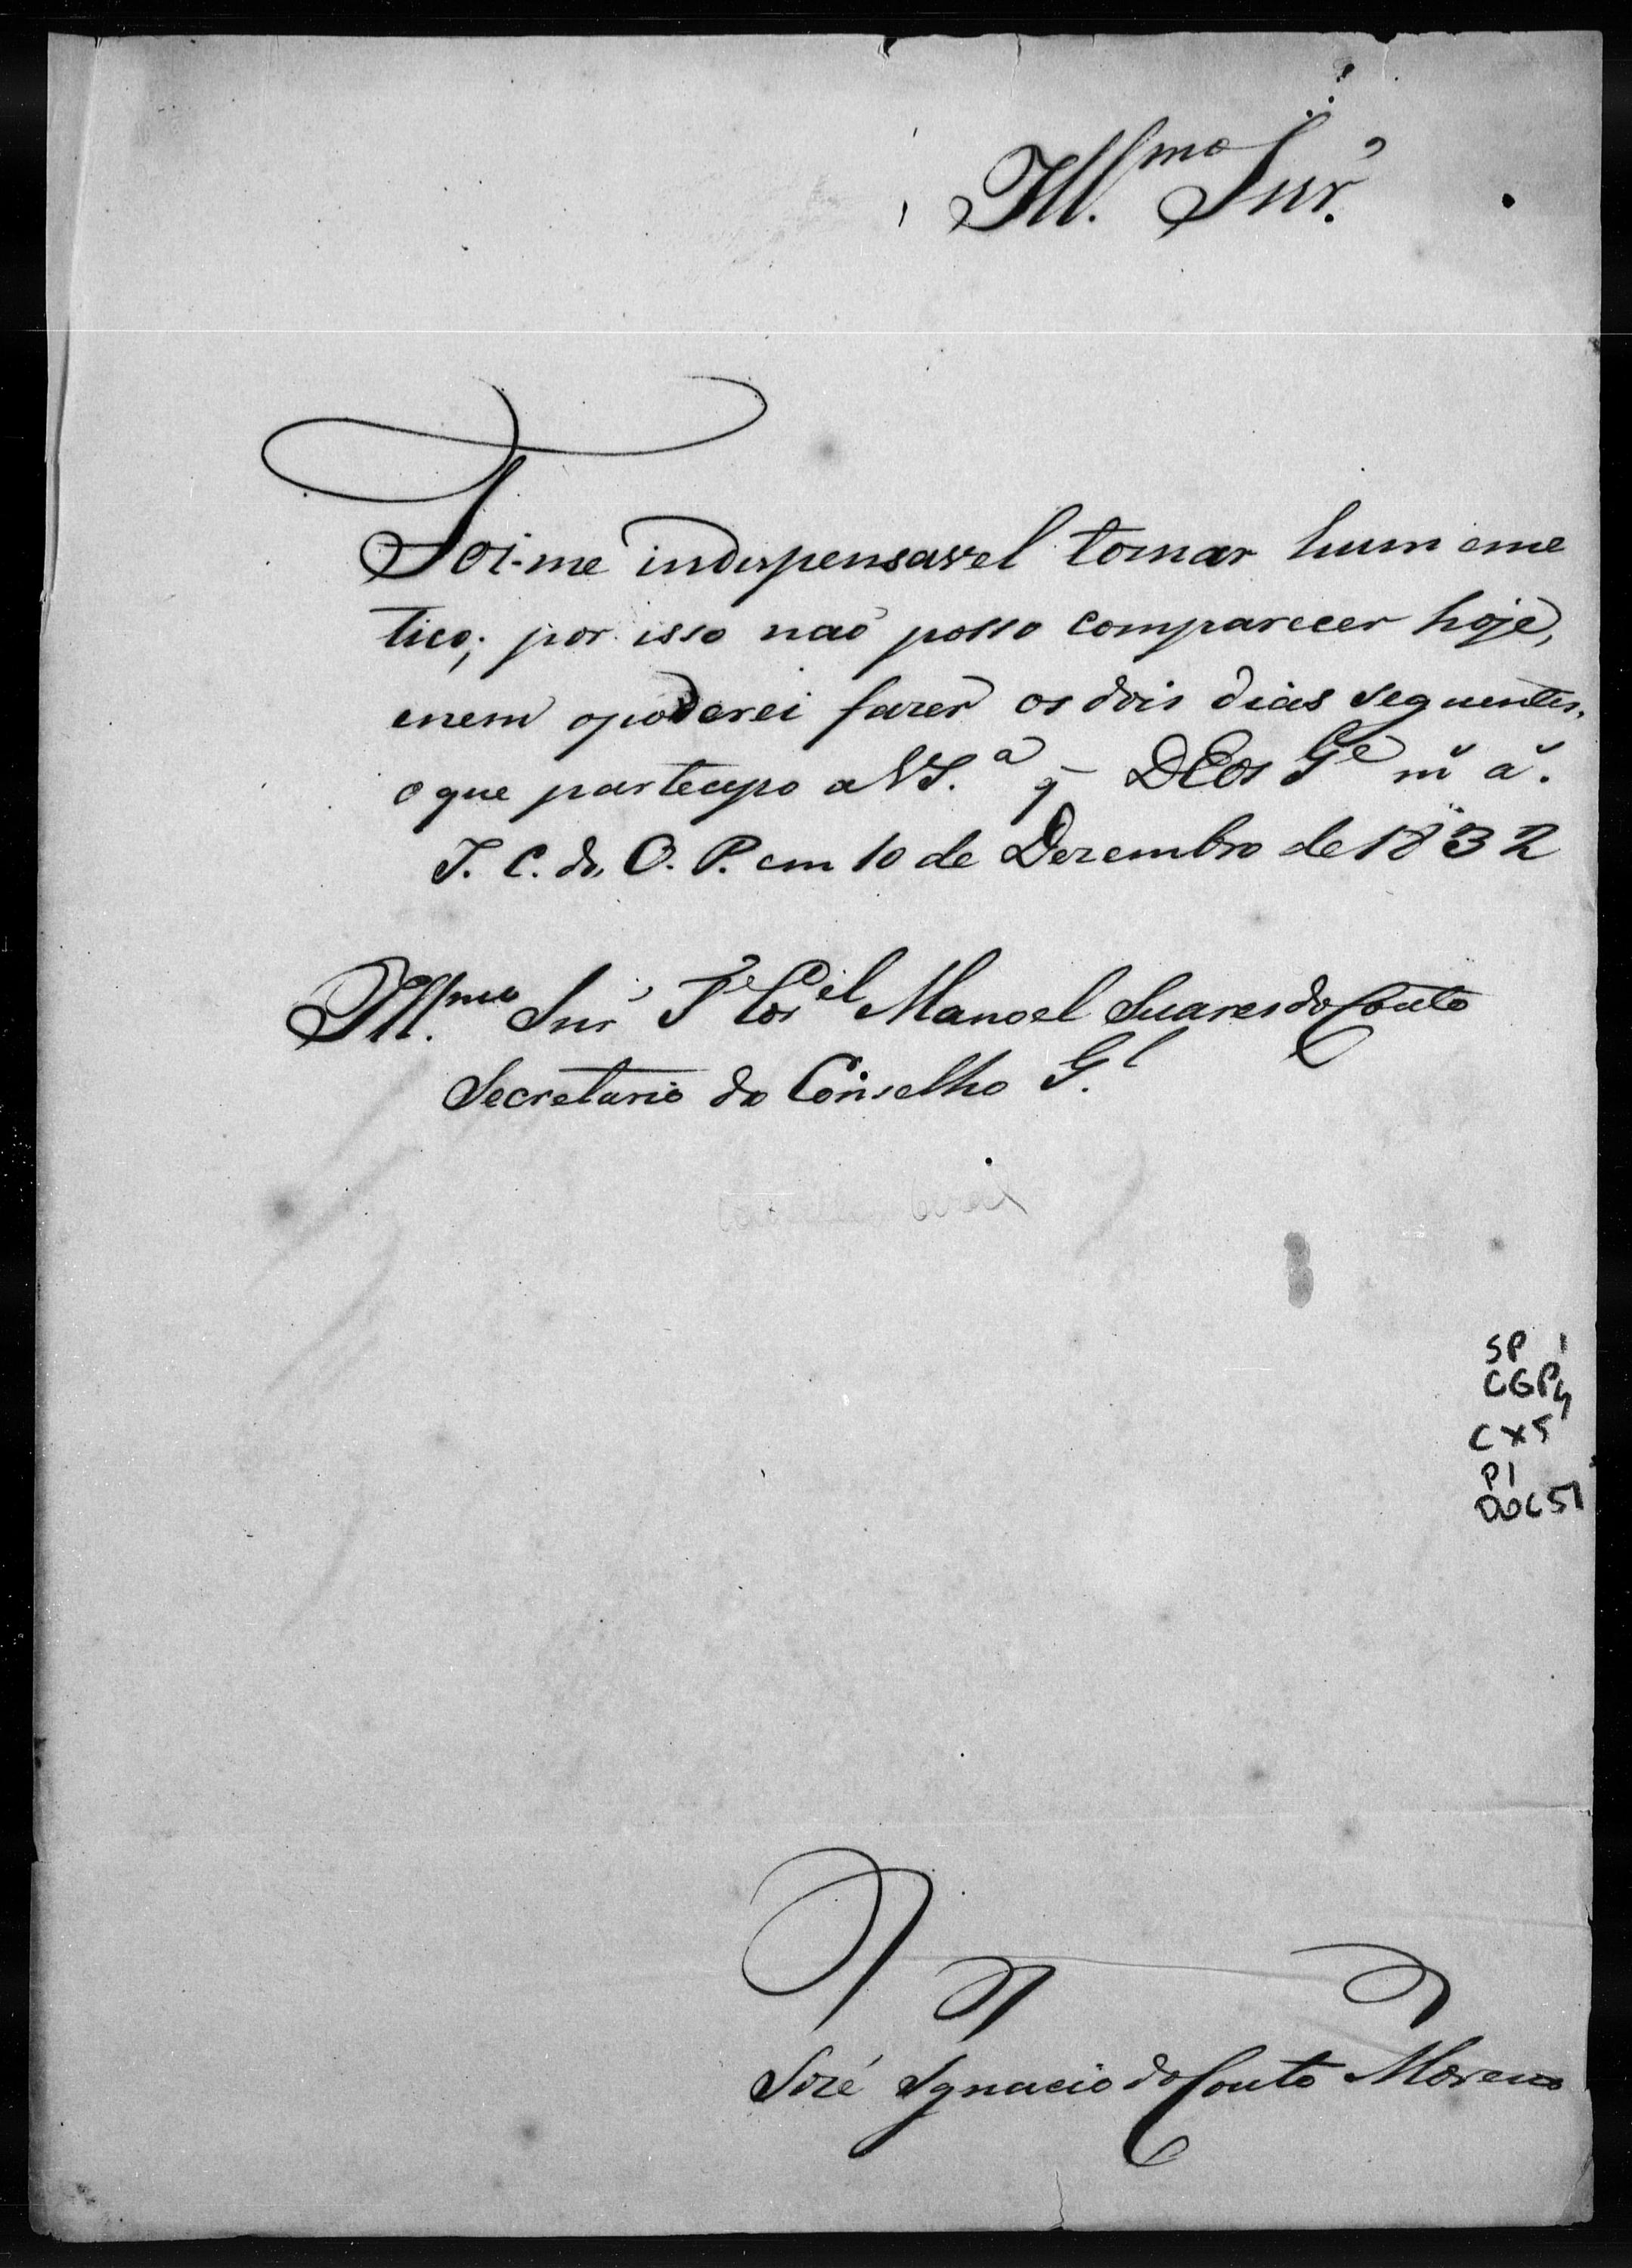 Ill.mo Snr.
Foi-me indispensavel tomar hum eme
tico; por isso naõ posso comparecer hoje,
enem opoderei fazer os dois dias seguentes,
o que partecipo a VS.a q̃ DEos G.e m.s a.s
I. C. do O. P. em 10 de Dezembro de 1832
Ill.mo Snr T.e Cor.el Manoel Suares do Couto
Secretario do Conselho G.l
Conselho Geral
SP 1
CGP4
CX5
P1
DOC 51
José Ignacio do Couto Moreno